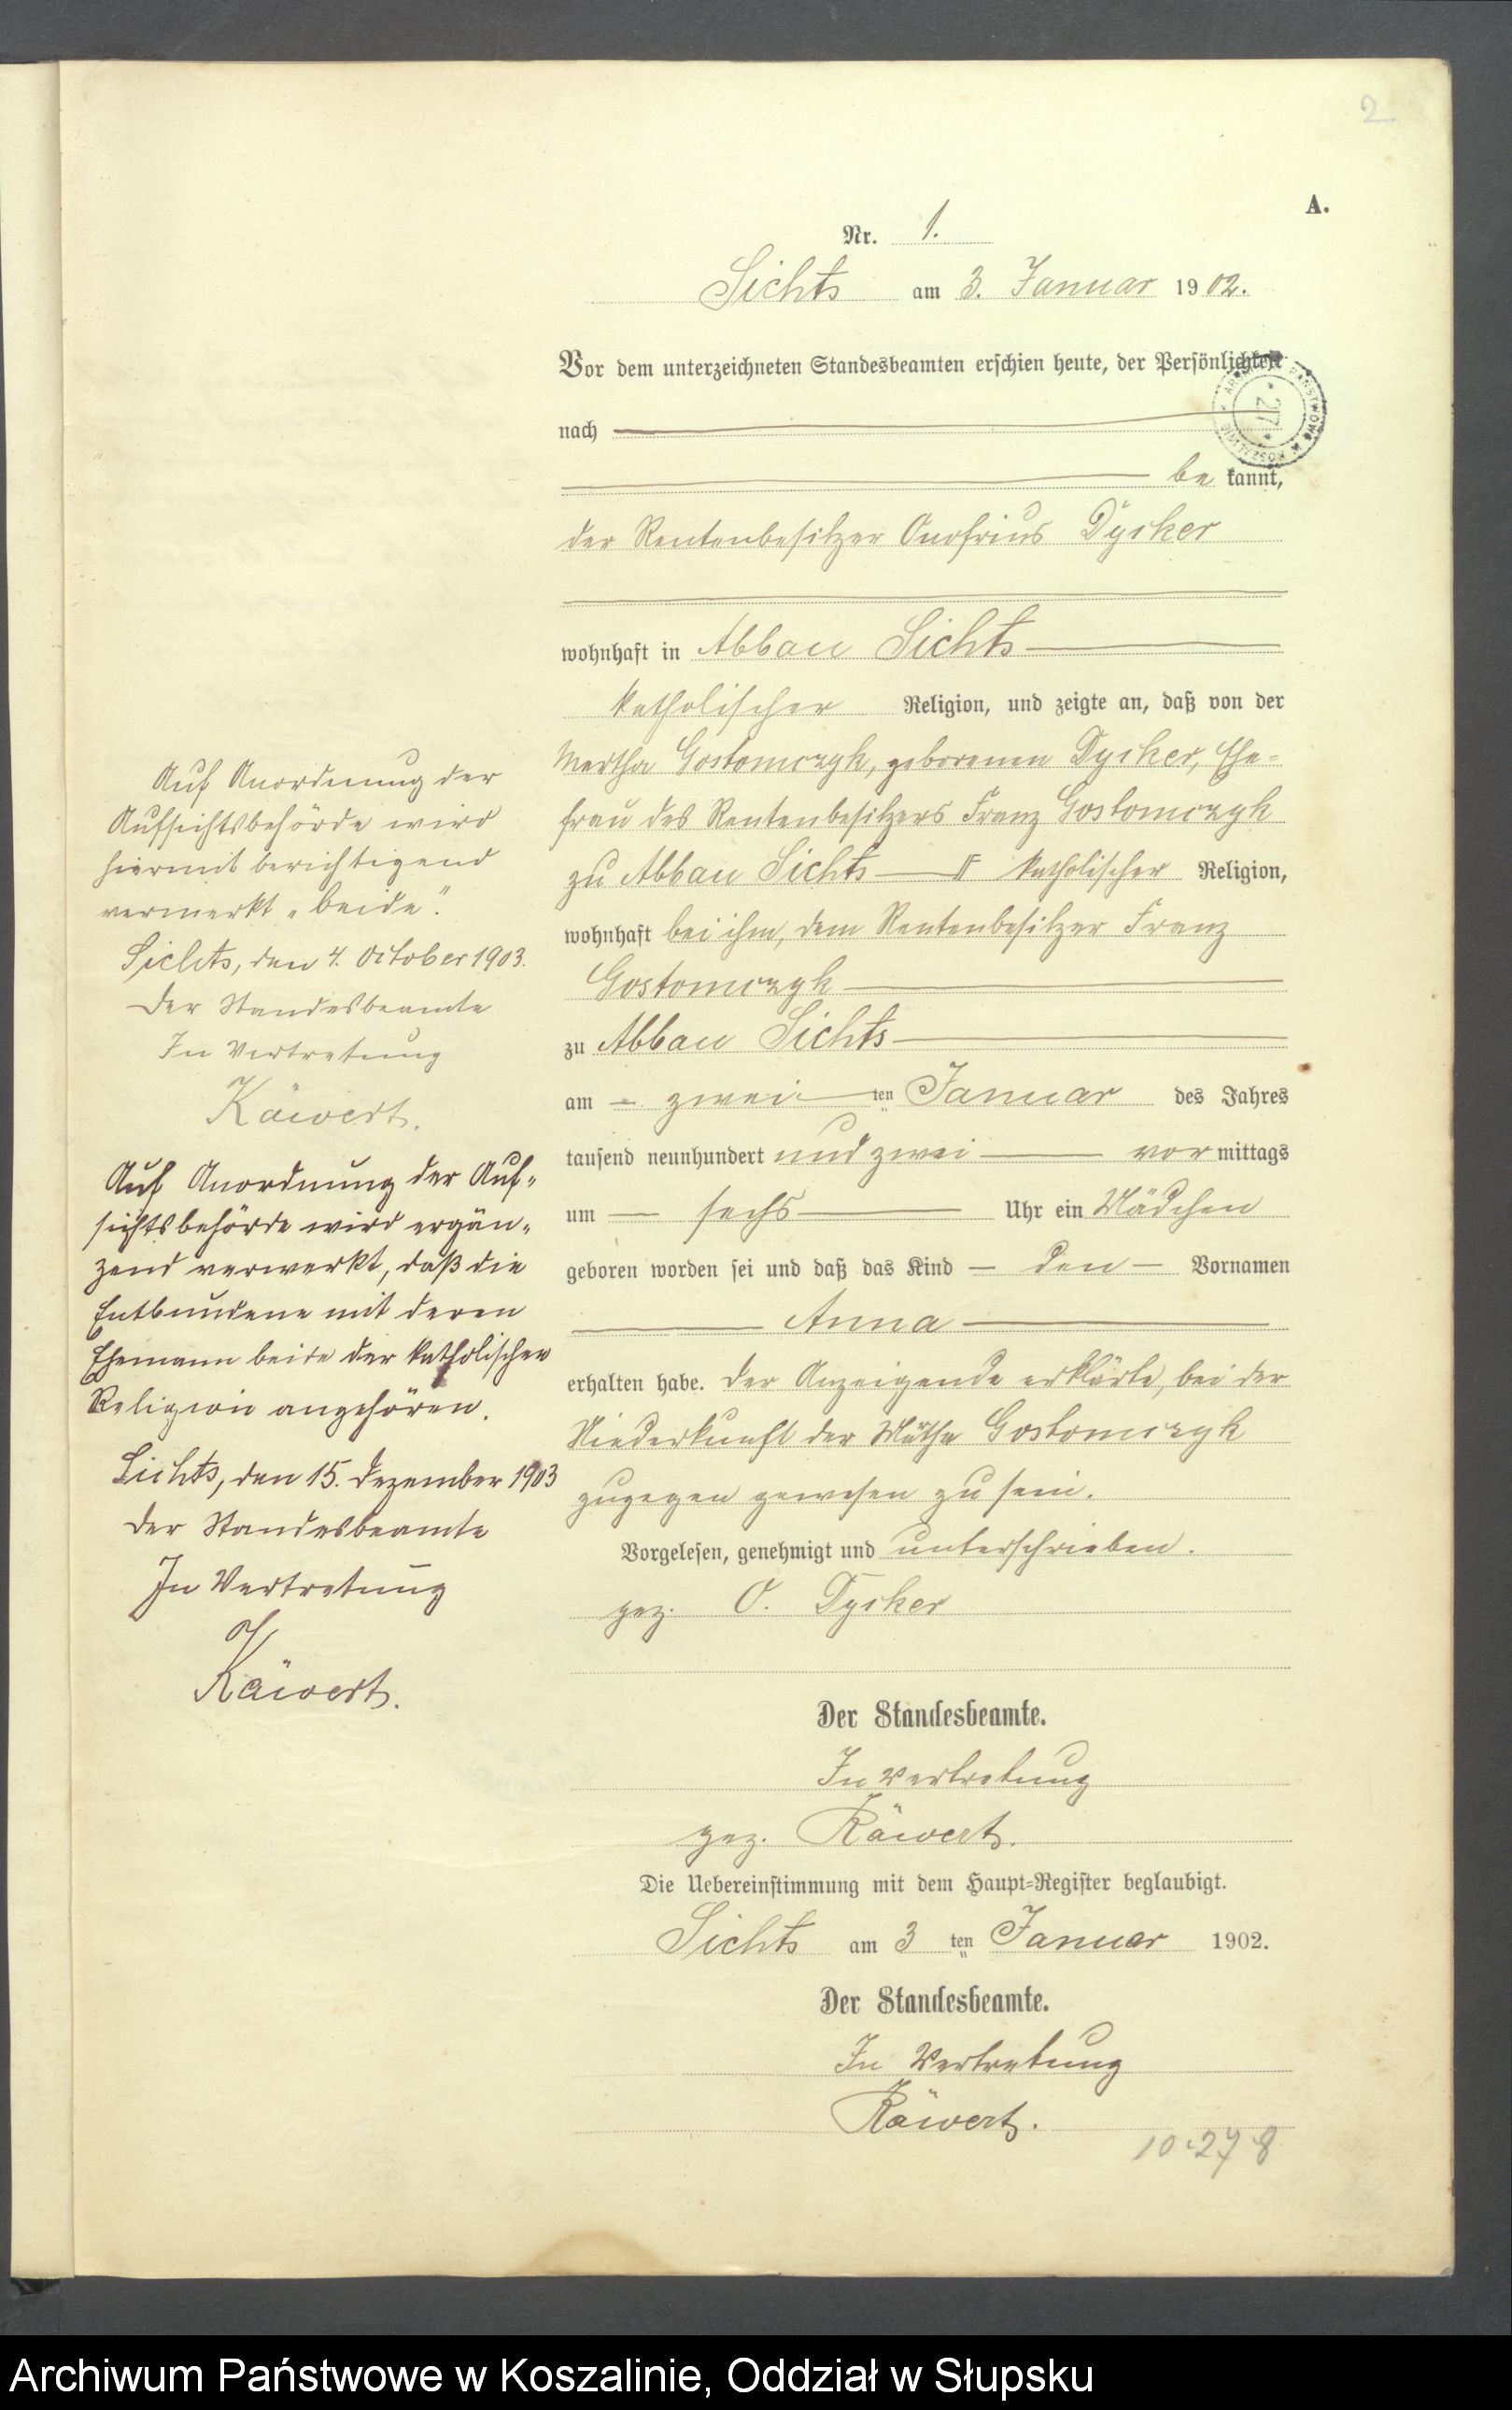 2
A.
Nr. 1.
Lichts am 3. Januar 1902.
Vor dem unterzeichneten Standesbeamten erschien heute, der Persönlichkeit
nach
be kannt,
der Rentenbesitzer Onofrius Dycker
wohnhaft in Abbau Sichts
katholischer Religion, und zeigte an, daß von der
Martha Gostomczyk, geborenen Dycker, Ehe-
frau des Rentenbesitzers Franz Gostomczyk
zu Abbau Sichts katholischer Religion,
wohnhaft bei ihm, dem Rentenbesitzer Franz
Gostomczyk
zu Abbau Sichts
am zwei ten Januar des Jahres
tausend neunhundert und zwei vor mittags
um sechs Uhr ein Mädchen
geboren worden sei und daß das Kind den Vornamen
Anna
erhalten habe. Der Anzeigende erklärte, bei der
Niederkunft der Martha Gostomczyk
zugegen gewesen zu sein.
Vorgelesen, genehmigt und unterschrieben.
gez. O. Dycker
Der Standesbeamte.
In Vertretung
gez. Käwert.
Die Uebereinstimmung mit dem Haupt-Register beglaubigt.
Sichts am 3 ten Januar 1902.
Der Standesbeamte.
In Vertretung
Käwert.
10.27 8
Auf Anordnung der
Aufsichtsbehörde wird
hiermit berichtigend
vermerkt "beide".
Sichts, den 4. October 1903.
Der Standesbeamte
In Vertretung
Käwert.
Auf Anordnung der Auf-
sichtsbehörde wird ergän-
zend vermerkt, daß die
Entbundene mit deren
Ehemann beide der katholischen
Religion angehören.
Sichts, den 15. Dezember 1903
Der Standesbeamte
In Vertretung
Käwert.
Archiwum Państwowe w Koszalinie, Oddział w Słupsku